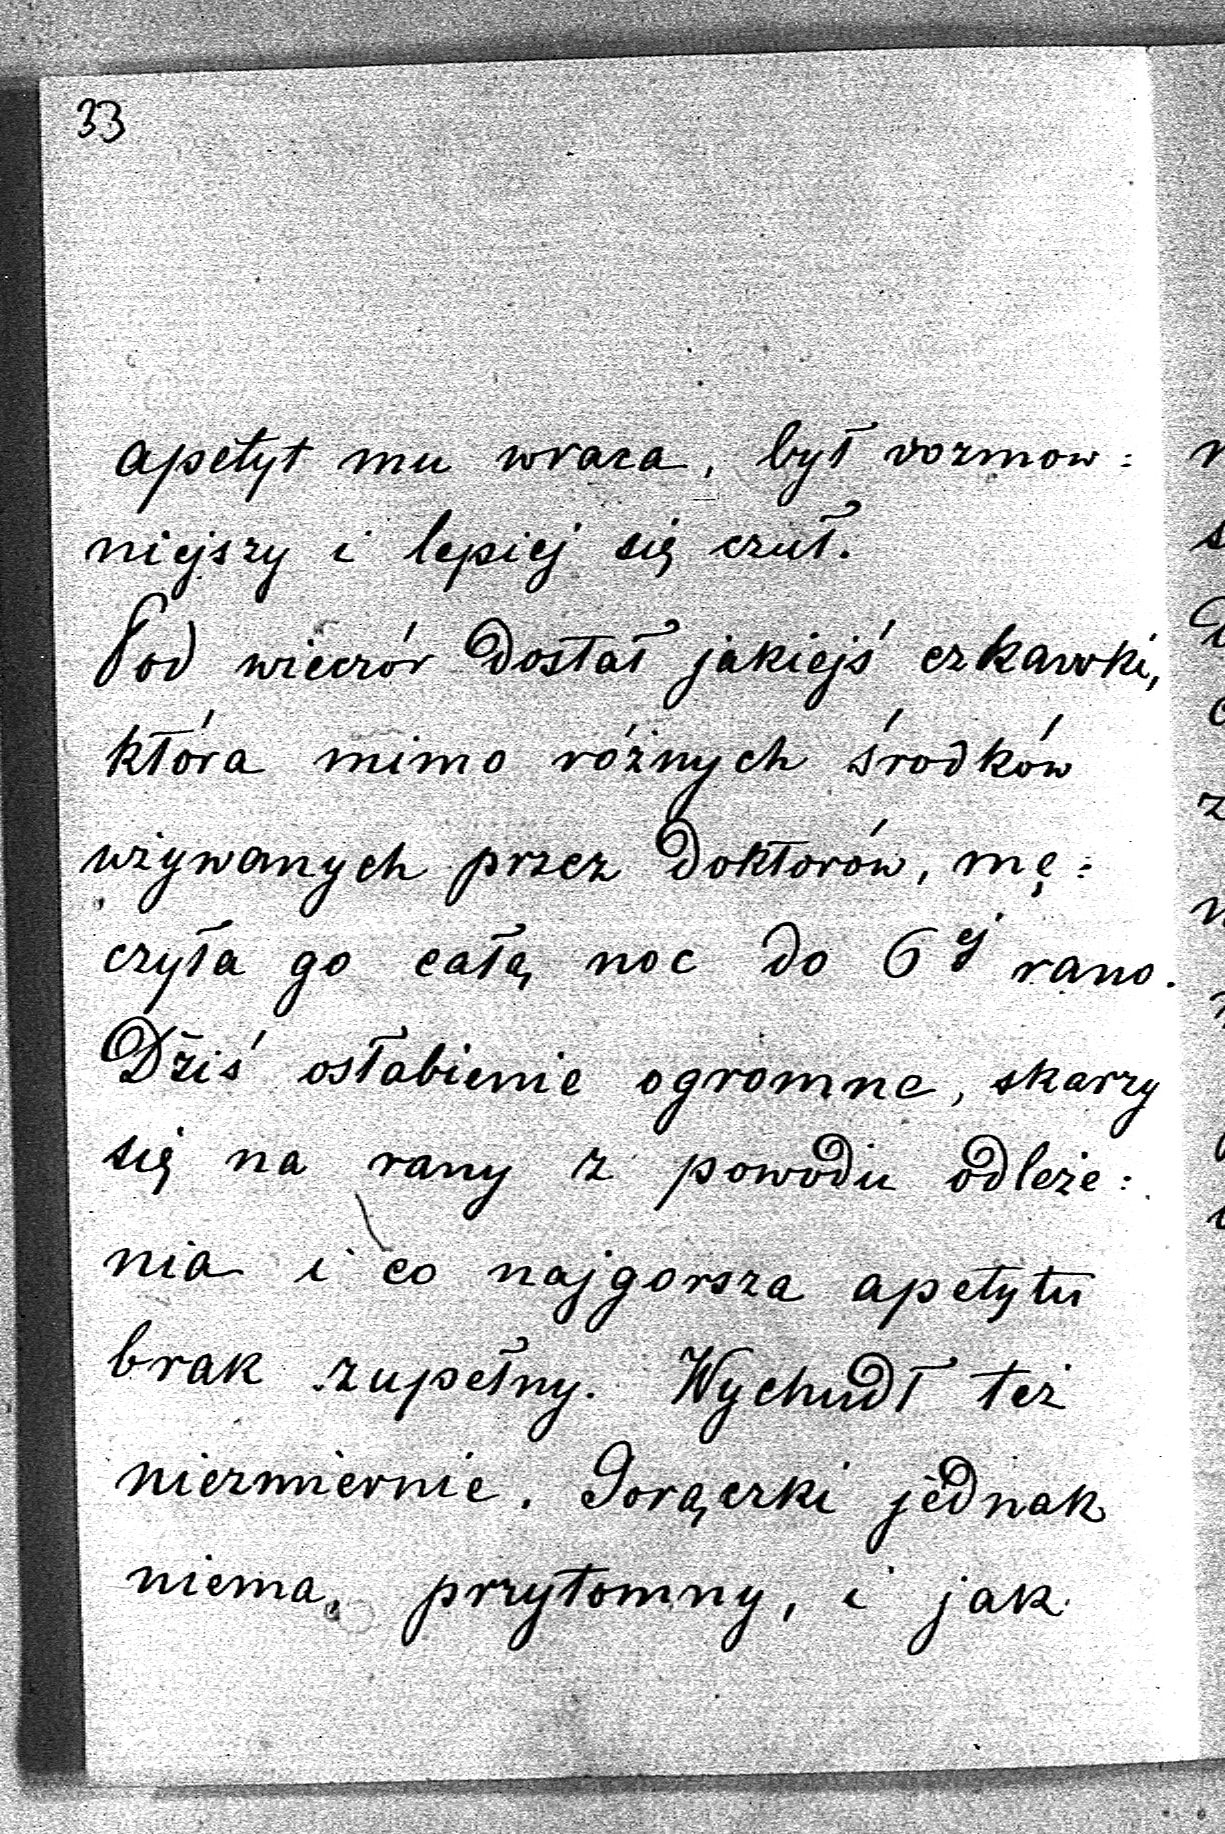 33
apetyt mu wraca, był rozmow:
niejszy i lepiej się czuł.
Pod wieczór dostał jakiejś czkawki,
która mimo różnych środków
używanych przez doktorów, mę:
czyła go całą noc do 6ej rano.
Dziś osłabienie ogromne, skarzy
się na rany z powodu odleże:
nia i co najgorsza apetytu
brak zupełny. Wychudł też
niezmiernie. Gorączki jednak
niema, przytomny, i jak